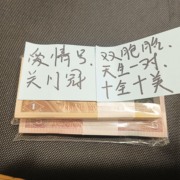 爱情号、
关门冠
双胞胎、
天生一对、
十全十美